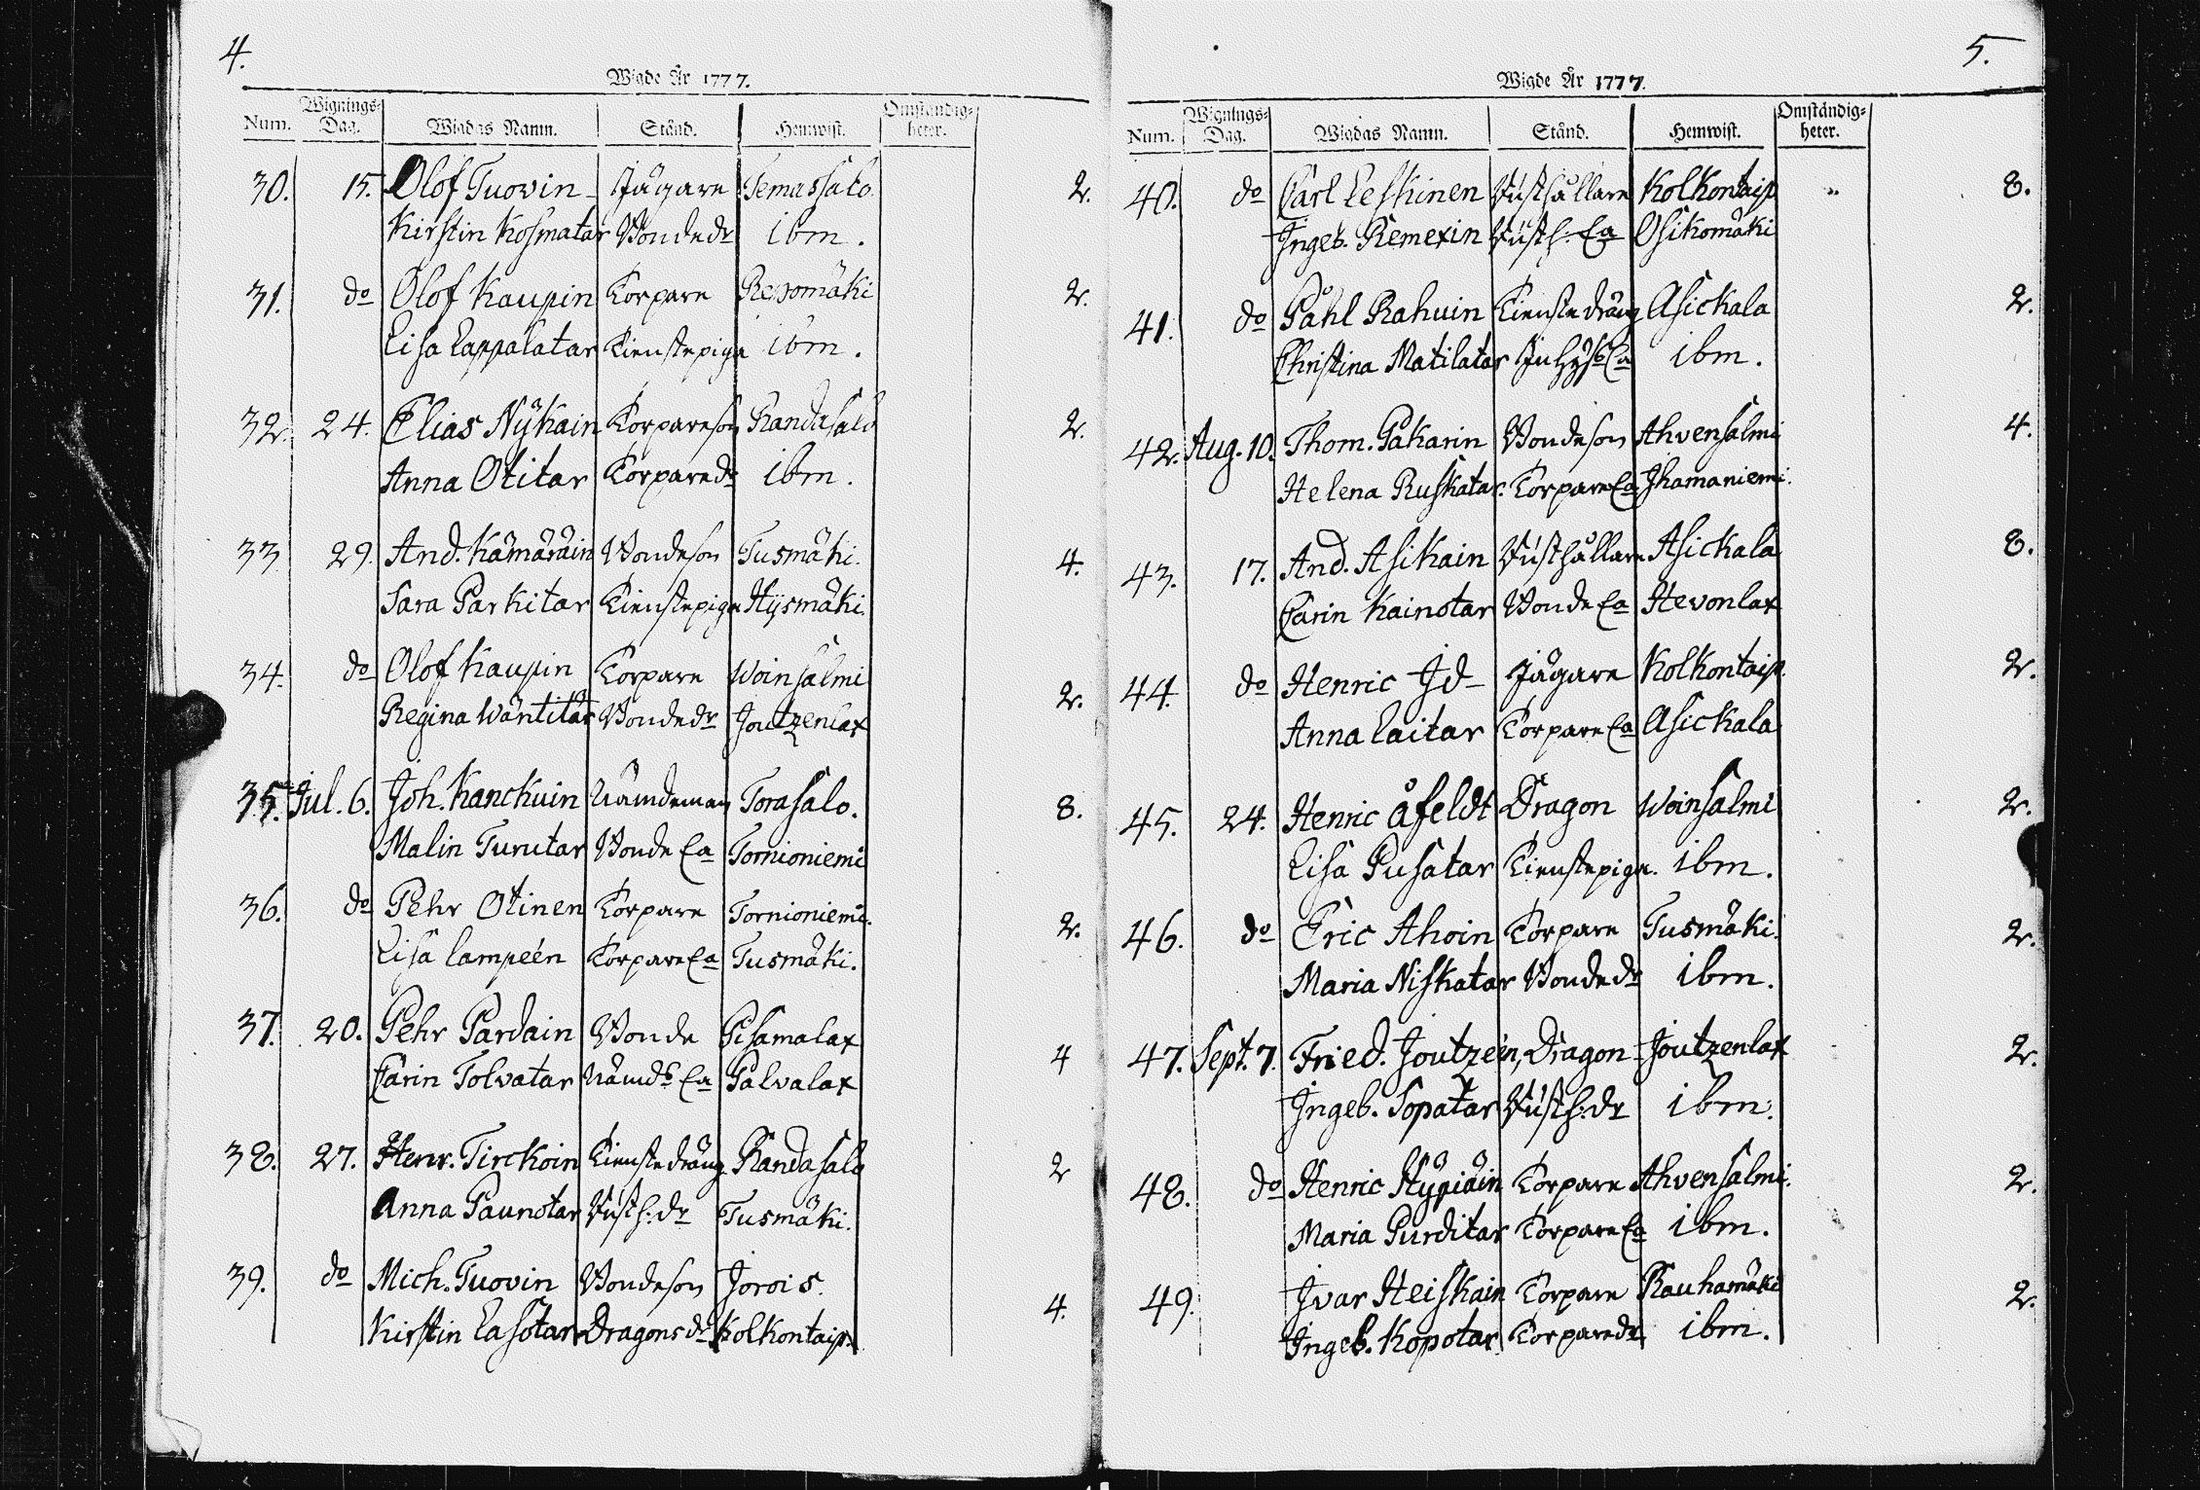 4.
Wigde År 1777.
Num. Wignings-Dag. Wigdas Namn. Stånd. Hemwist. Omständig-heter.
30. 15. Olof Tuovin Jägare Temassalo. 2.
Kirstin Kosmatar Bondedr ibm.
31. do Olof Kaupin Torpare Repomäki 2.
Lisa Lappalatar Tienstepiga ibm.
32. 24. Elias Nykäin Torpareson Randasalo 2.
Anna Otitar Torparedr ibm.
33 29. And. Kämäräin Bondeson Tusmäki. 4.
Sara Parkitar Tienstepiga Hysmäki.
34. do Olof Kaupin Torpare Woinsalmi 2.
Regina Wäntitär Bondedr Joutzenlax
35. Jul. 6. Joh. Kanckuin Nämdeman Torasalo. 8.
Malin Turutar Bonde Ea Tornioniemi
36. do Pehr Otinen Torpare Tornioniemi. 2.
Lisa Lampeén Torpare Ea Tusmäki.
37. 20. Pehr Pardain Bonde Pisamalax 4
Carin Tolvatar Nämds Ea Palvalax
38. 27. Henr. Tirckoin Tienstedräng Randasalo 2
Anna Paunotar Rusth: dr Tusmäki.
39. do Mich. Tuovin Bondeson Jorois. 4.
Kirstin Lasotar Dragonsdr Kolkontaip.
5.
Wigde År 1777.
Num. Wignings-Dag. Wigdas Namn. Stånd. Hemwist. Omständig-heter.
40. do Carl Leskinen Rusthållare Kolkontaip " 8.
Ingeb. Remexin Rusth: Ea Osikomäki
41. do Påhl Rahuin Tienstedräng Asickala 2.
Christina Matilatar Inhys Ea ibm.
42. Aug. 10. Thom. Pakarin Bondeson Ahvensalmi 4.
Helena Ruskatar. Torpare Ea Ihamaniemi.
43. 17. And. Asikain Rusthållare Asickala 8.
Carin Kainotar Bonde Ea Hevonlax
44. do Henric Id Jägare Kolkontaip. 2.
Anna Laitar Torpare Ea Asickala
45. 24. Henric Åfeldt Dragon Woinsalmi 2.
Lisa Pusatar Tienstepiga. ibm.
46. do Eric Ahoin Torpare Tusmäki. 2.
Maria Niskatar Bondedr ibm.
47. Sept. 7. Fried. Joutzeén, Dragon Joutzenlax 2.
Ingeb. Sopatar Rusth: dr ibm.
48. do Henric Hypiäin Torpare Ahvensalmi. 2.
Maria Purditar Torpare Ea ibm.
49. Ivar Heiskain Torpare Rauhamäki 2.
Ingeb. Kopotar Torparedr ibm.